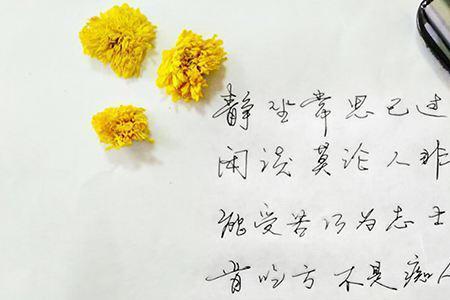 静坐常思己过
闲谈莫论人非
能受苦乃为志士
肯吃亏不是痴人